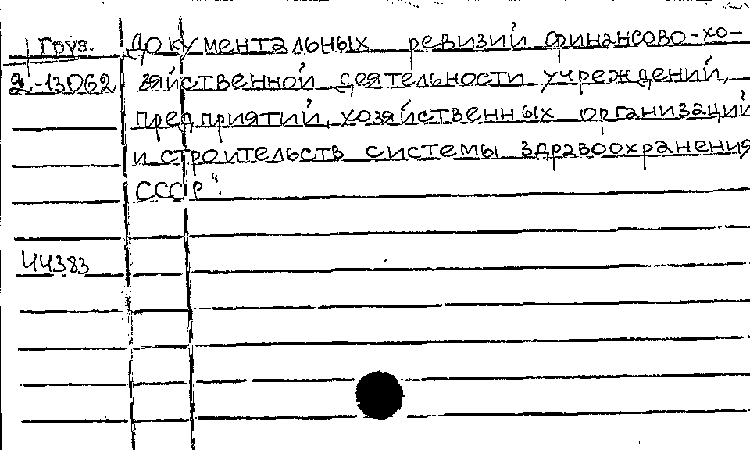 Груз. документальных ревизий финансово-хо-
2.-13062 зяйственной деятельности учреждений,
предприятий, хозяйственных организаций
и строительств системы здравоохранения
СССР".
44383